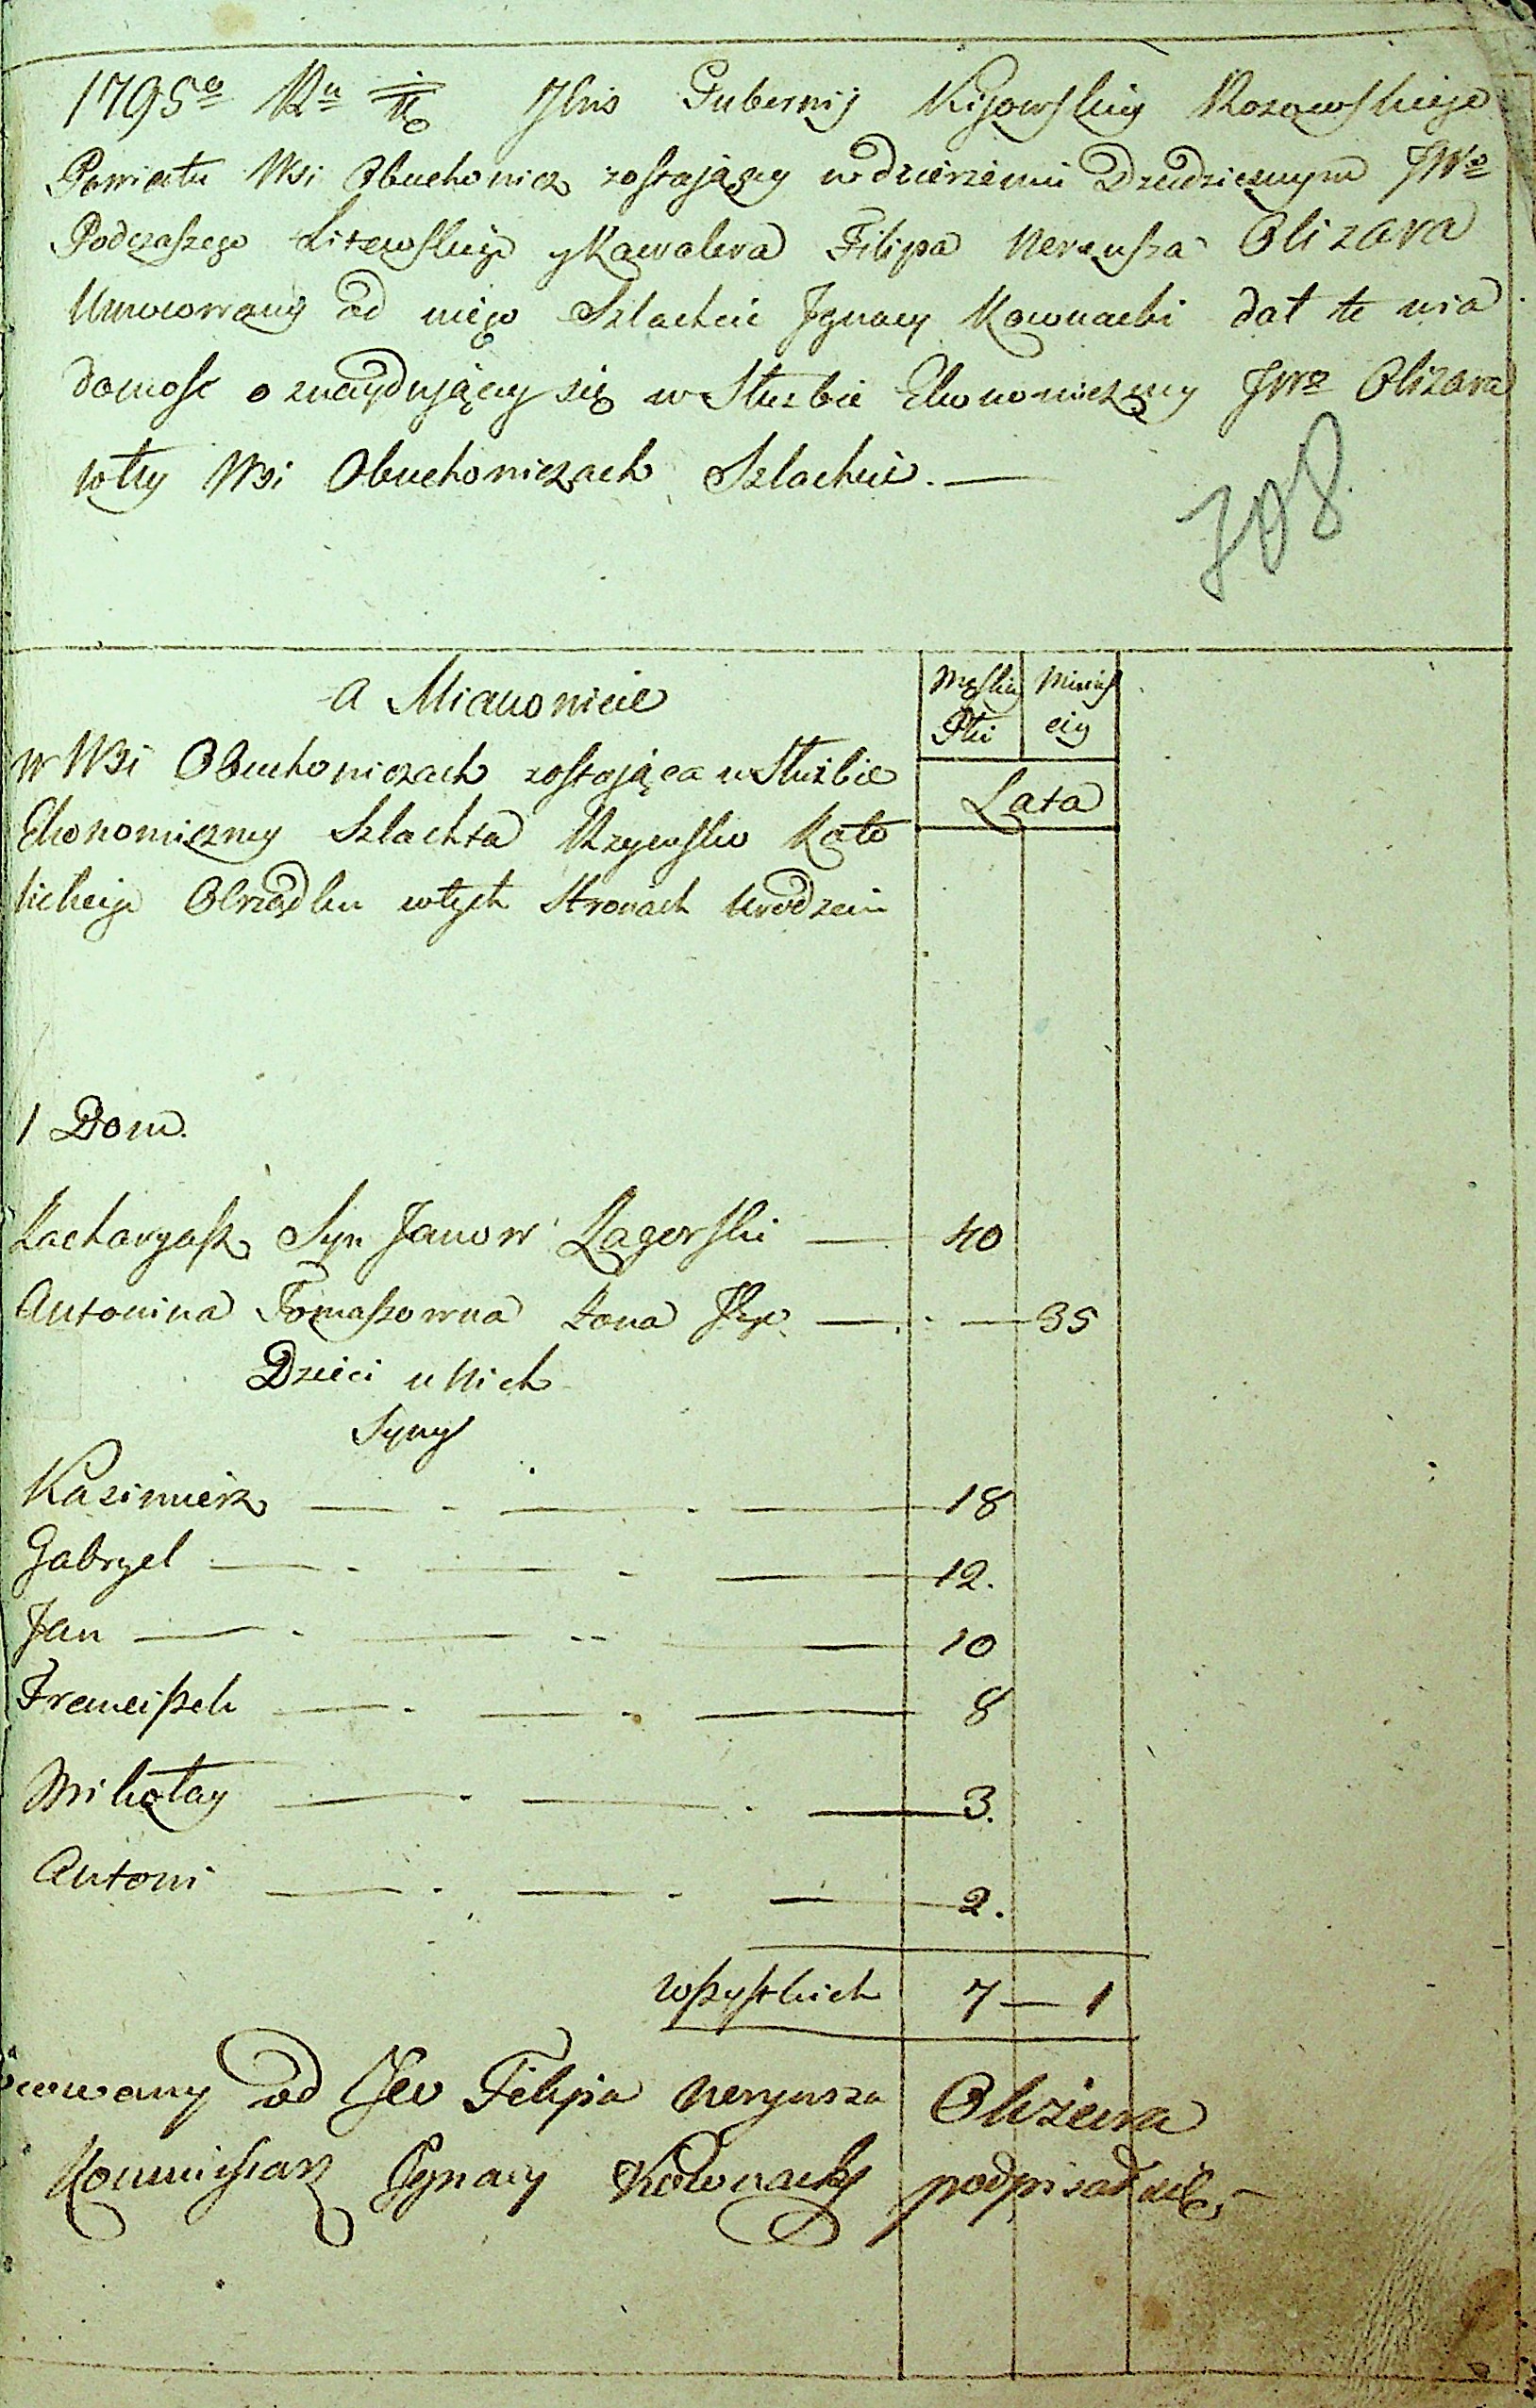 1795º Ru Jbris Gubernij Kijowskiy Rozowskiego
Powiatu Wsi Obuchowicz zostaiącey w dzierzeniu Dziedzicznym JWº
Podczaszego Litewskiego y Kawalera Filipa Neryusza Olizara
Umocowany od niego Szlachcic Jgnacy Kownacki dał te wia
domość o znayduiącey się w Służbie Ekonomiczney JWº Olizara
w tey Wsi Obuchowiczach Szlachcie. —
708
a Mianowicie
Męskiey Płci
Niewieściey
w Wsi Obuchowiczach zostająca w Służbie
Lata
Ekonomiczney Szlachta Rzymsko Kato
lickiego Obrządku w tych Stronach urodzeni
1 Dom.
Zacharyasz Syn Janow Zagorski — 40
Antonina Tomaszowna Zona Jego — 35
Dzieci u Nich
Syny
Kazimierz — 18
Gabryel — 12.
Jan — 10
Franciszek — 8
Mikołay — 3.
Antoni — 2.
wszystkich 7 — 1
cowany od Jeo Filipa Neryusza Olizara
Kommissarz Jgnacy Kownacky podpisał się